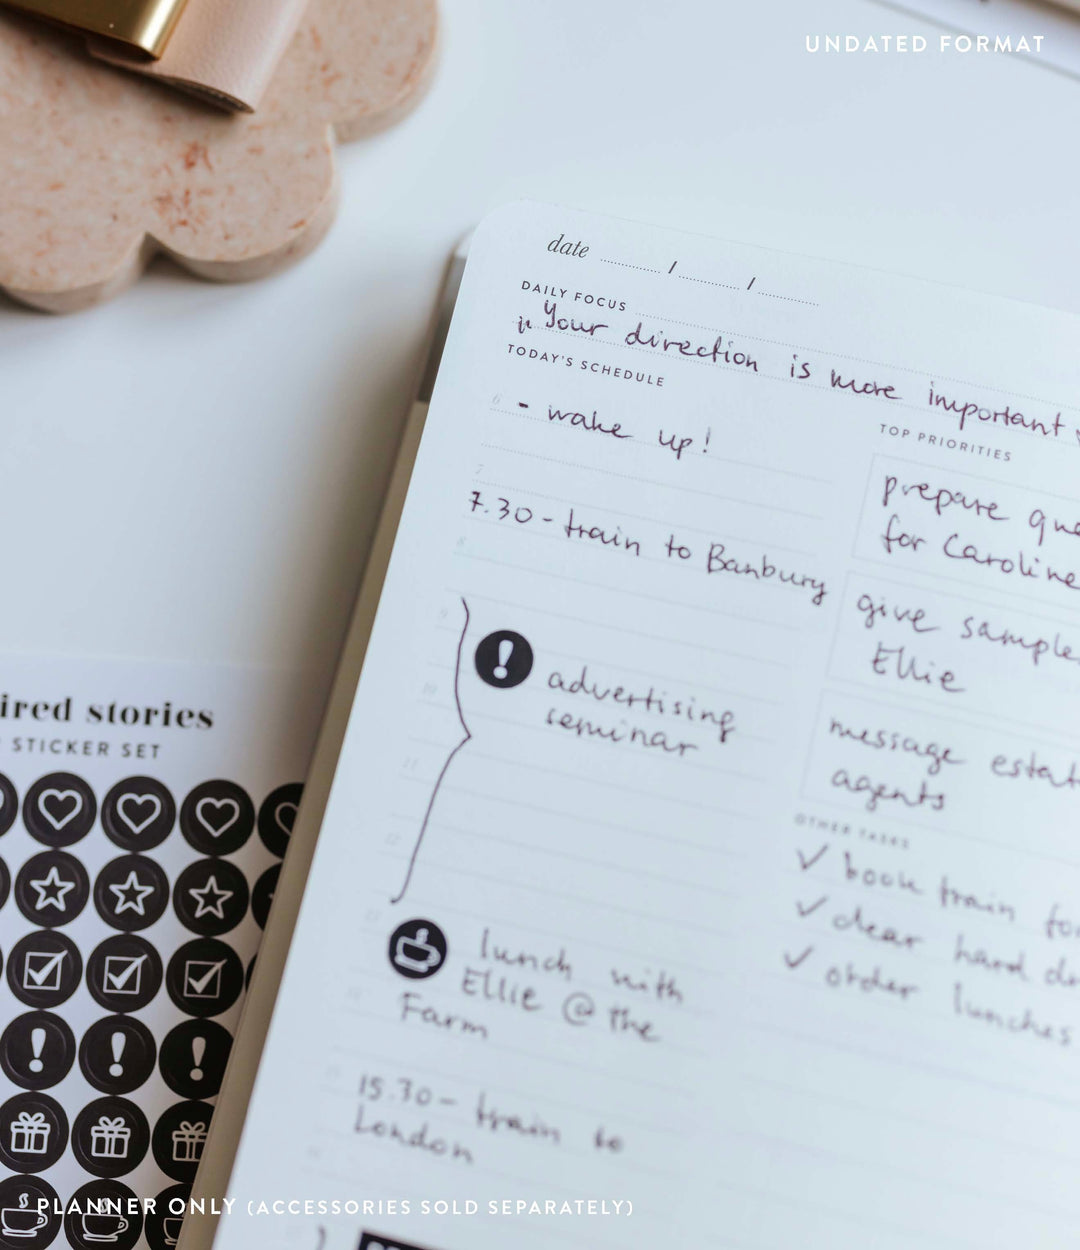 UNDATED FORMAT
date / /
DAILY FOCUS
"Your direction is more important
TODAY'S SCHEDULE
6 - wake up!
7
7.30 - train to Banbury
8
9
advertising
10
seminar
11
12
13
lunch with
Ellie @ the
Farm
15.30 - train to
London
TOP PRIORITIES
prepare
for Caroline
give
Ellie
message
agents
OTHER TASKS
✓ book train
✓ clear hard
✓ order lunches
stories
STICKER SET
PLANNER ONLY (ACCESSORIES SOLD SEPARATELY)